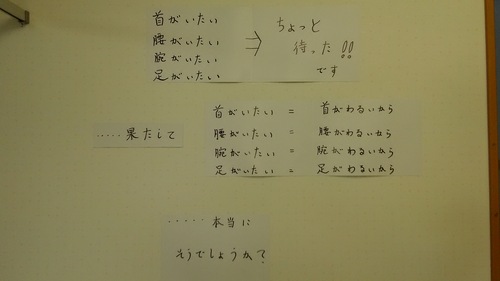 首がいたい
腰がいたい
腕がいたい
足がいたい
⇒
ちょっと
待った!!
です
・・・・・果たして
首がいたい = 首がわるいから
腰がいたい = 腰がわるいから
腕がいたい = 腕がわるいから
足がいたい = 足がわるいから
・・・・・本当に
そうでしょうか?